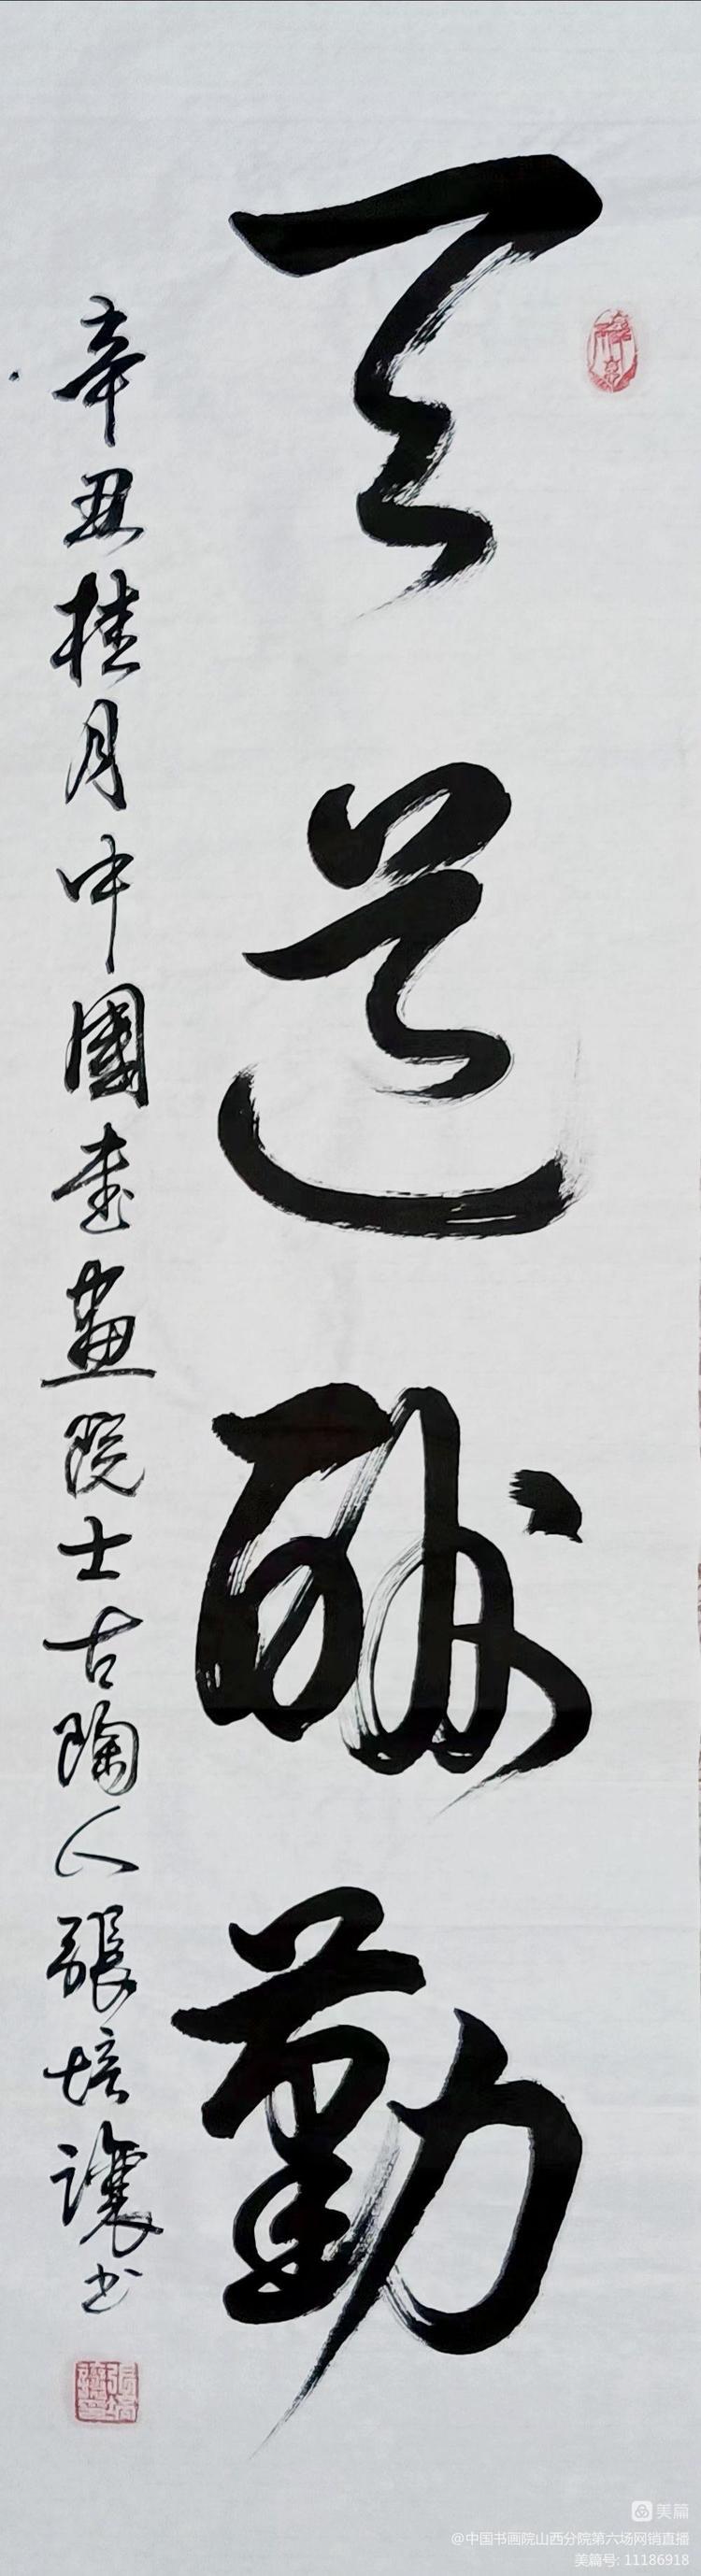 天道酬勤
辛丑桂月中國書畫院士古陶人張培讓书
美篇
@中国书画院山西分院第六场网销直播
美篇号: 11186918